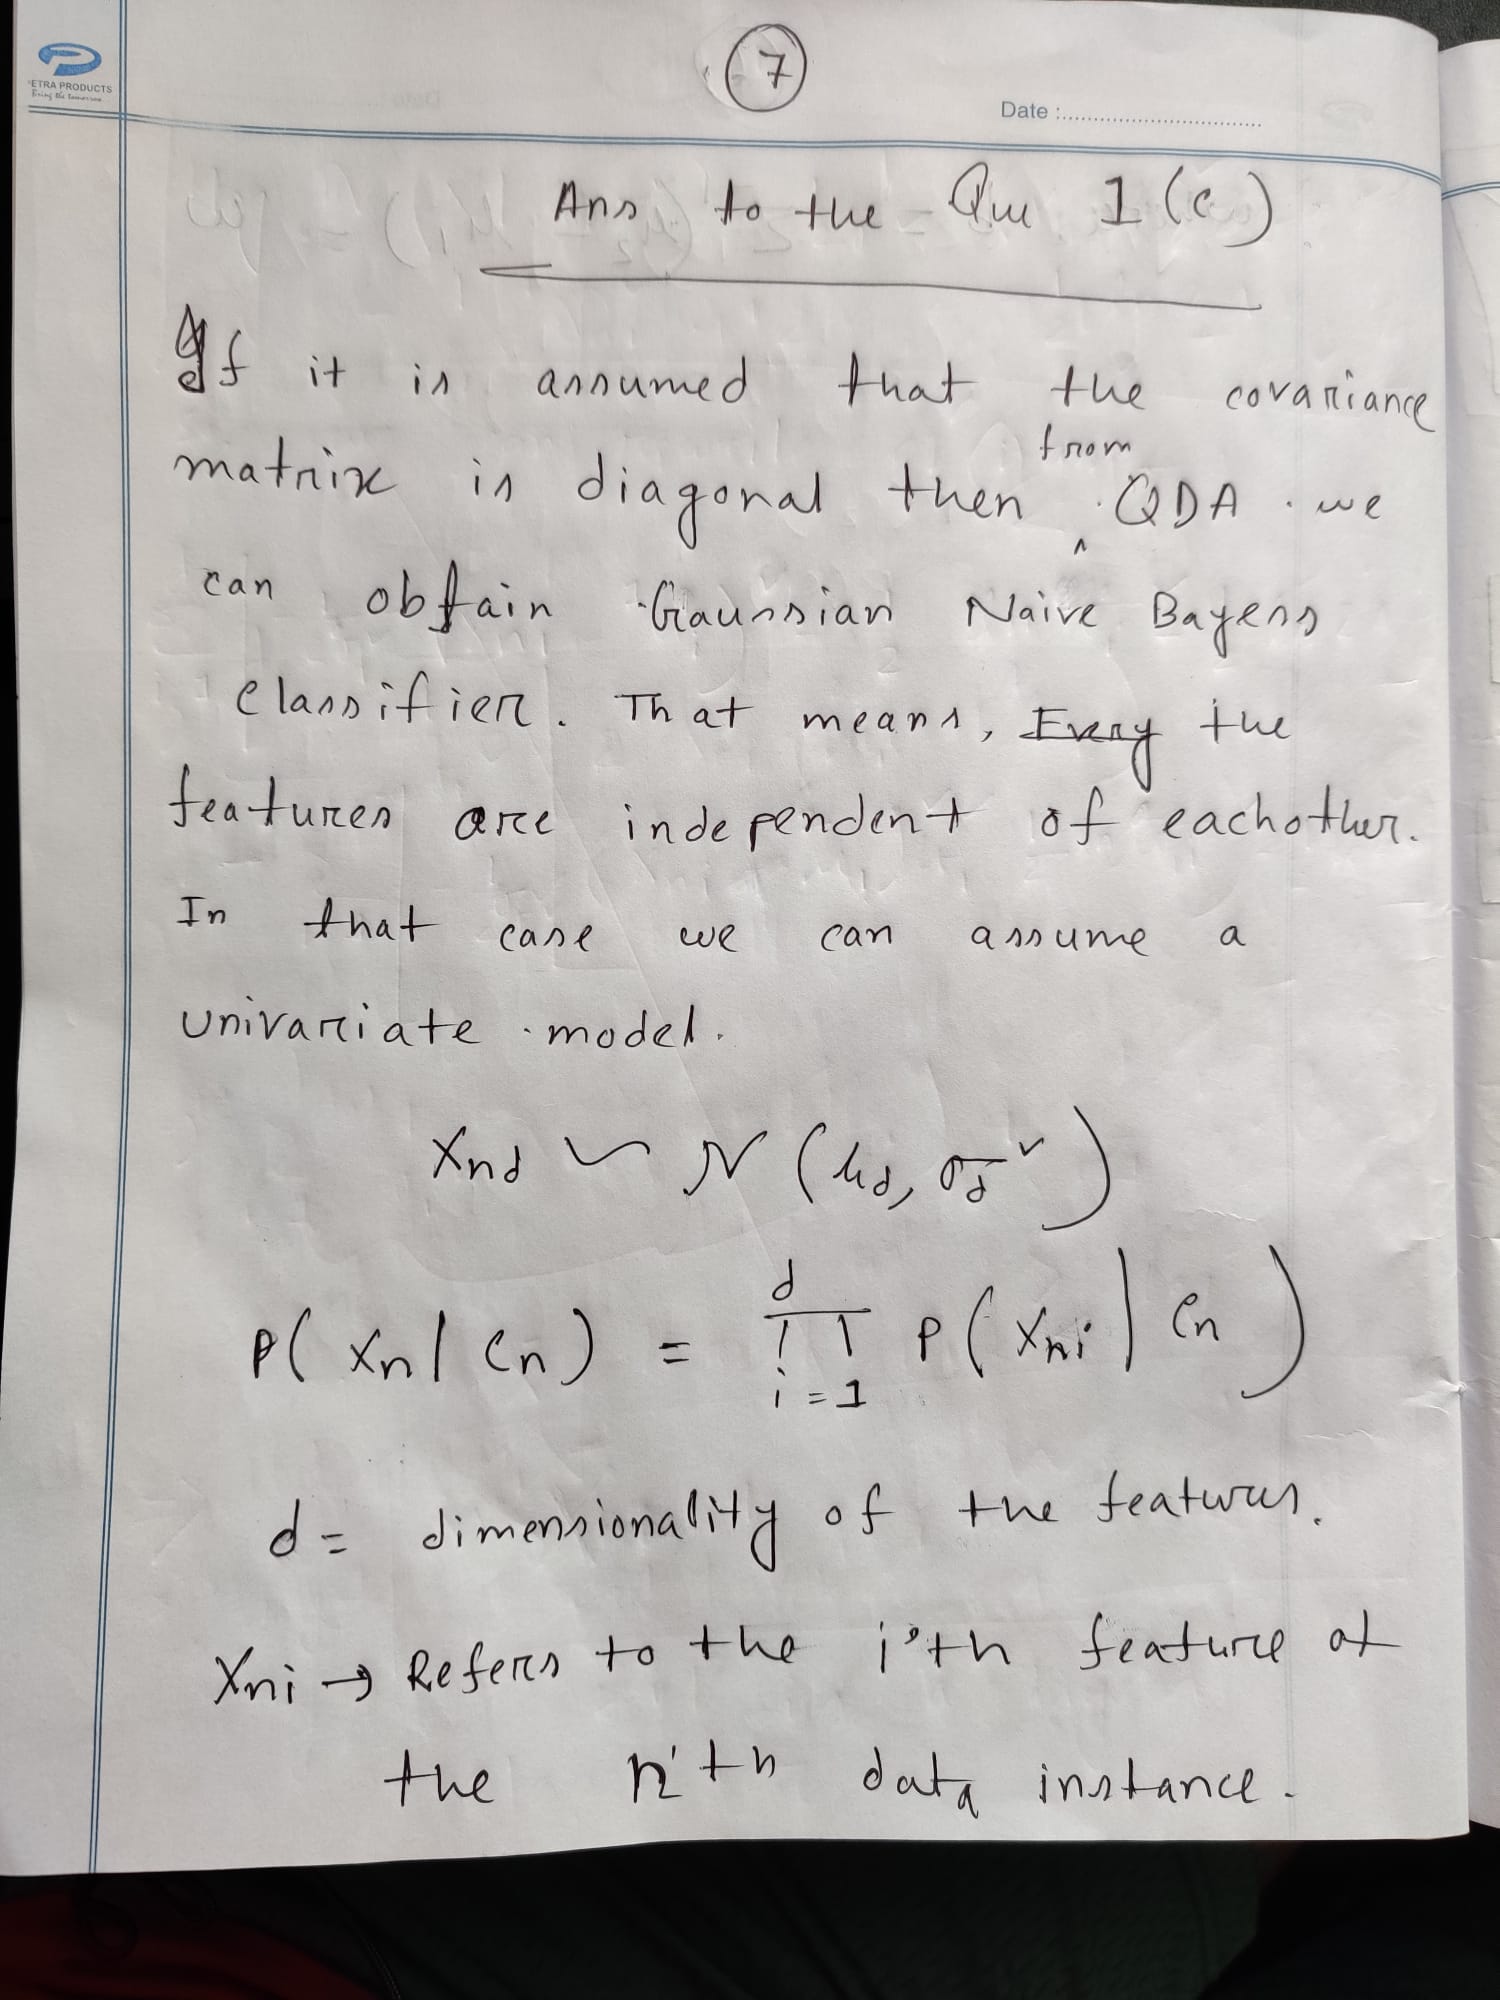 ETRA PRODUCTS
Bring the tomorrow
7
Date :
Ans to the Que 1(c)
If it is assumed that the covariance
matrix is diagonal then from QDA we
can obtain Gaussian Naive Bayess
classifier. That means, Every the
features are independent of eachother.
In that case we can assume a
univariate model.
Xnd ~ N (μd, σd²)
P( Xn | Cn) = ∏ᵈᵢ₌₁ P( Xni | Cn )
d = dimensionality of the features.
Xni → Refers to the i'th feature of
the n'th data instance.